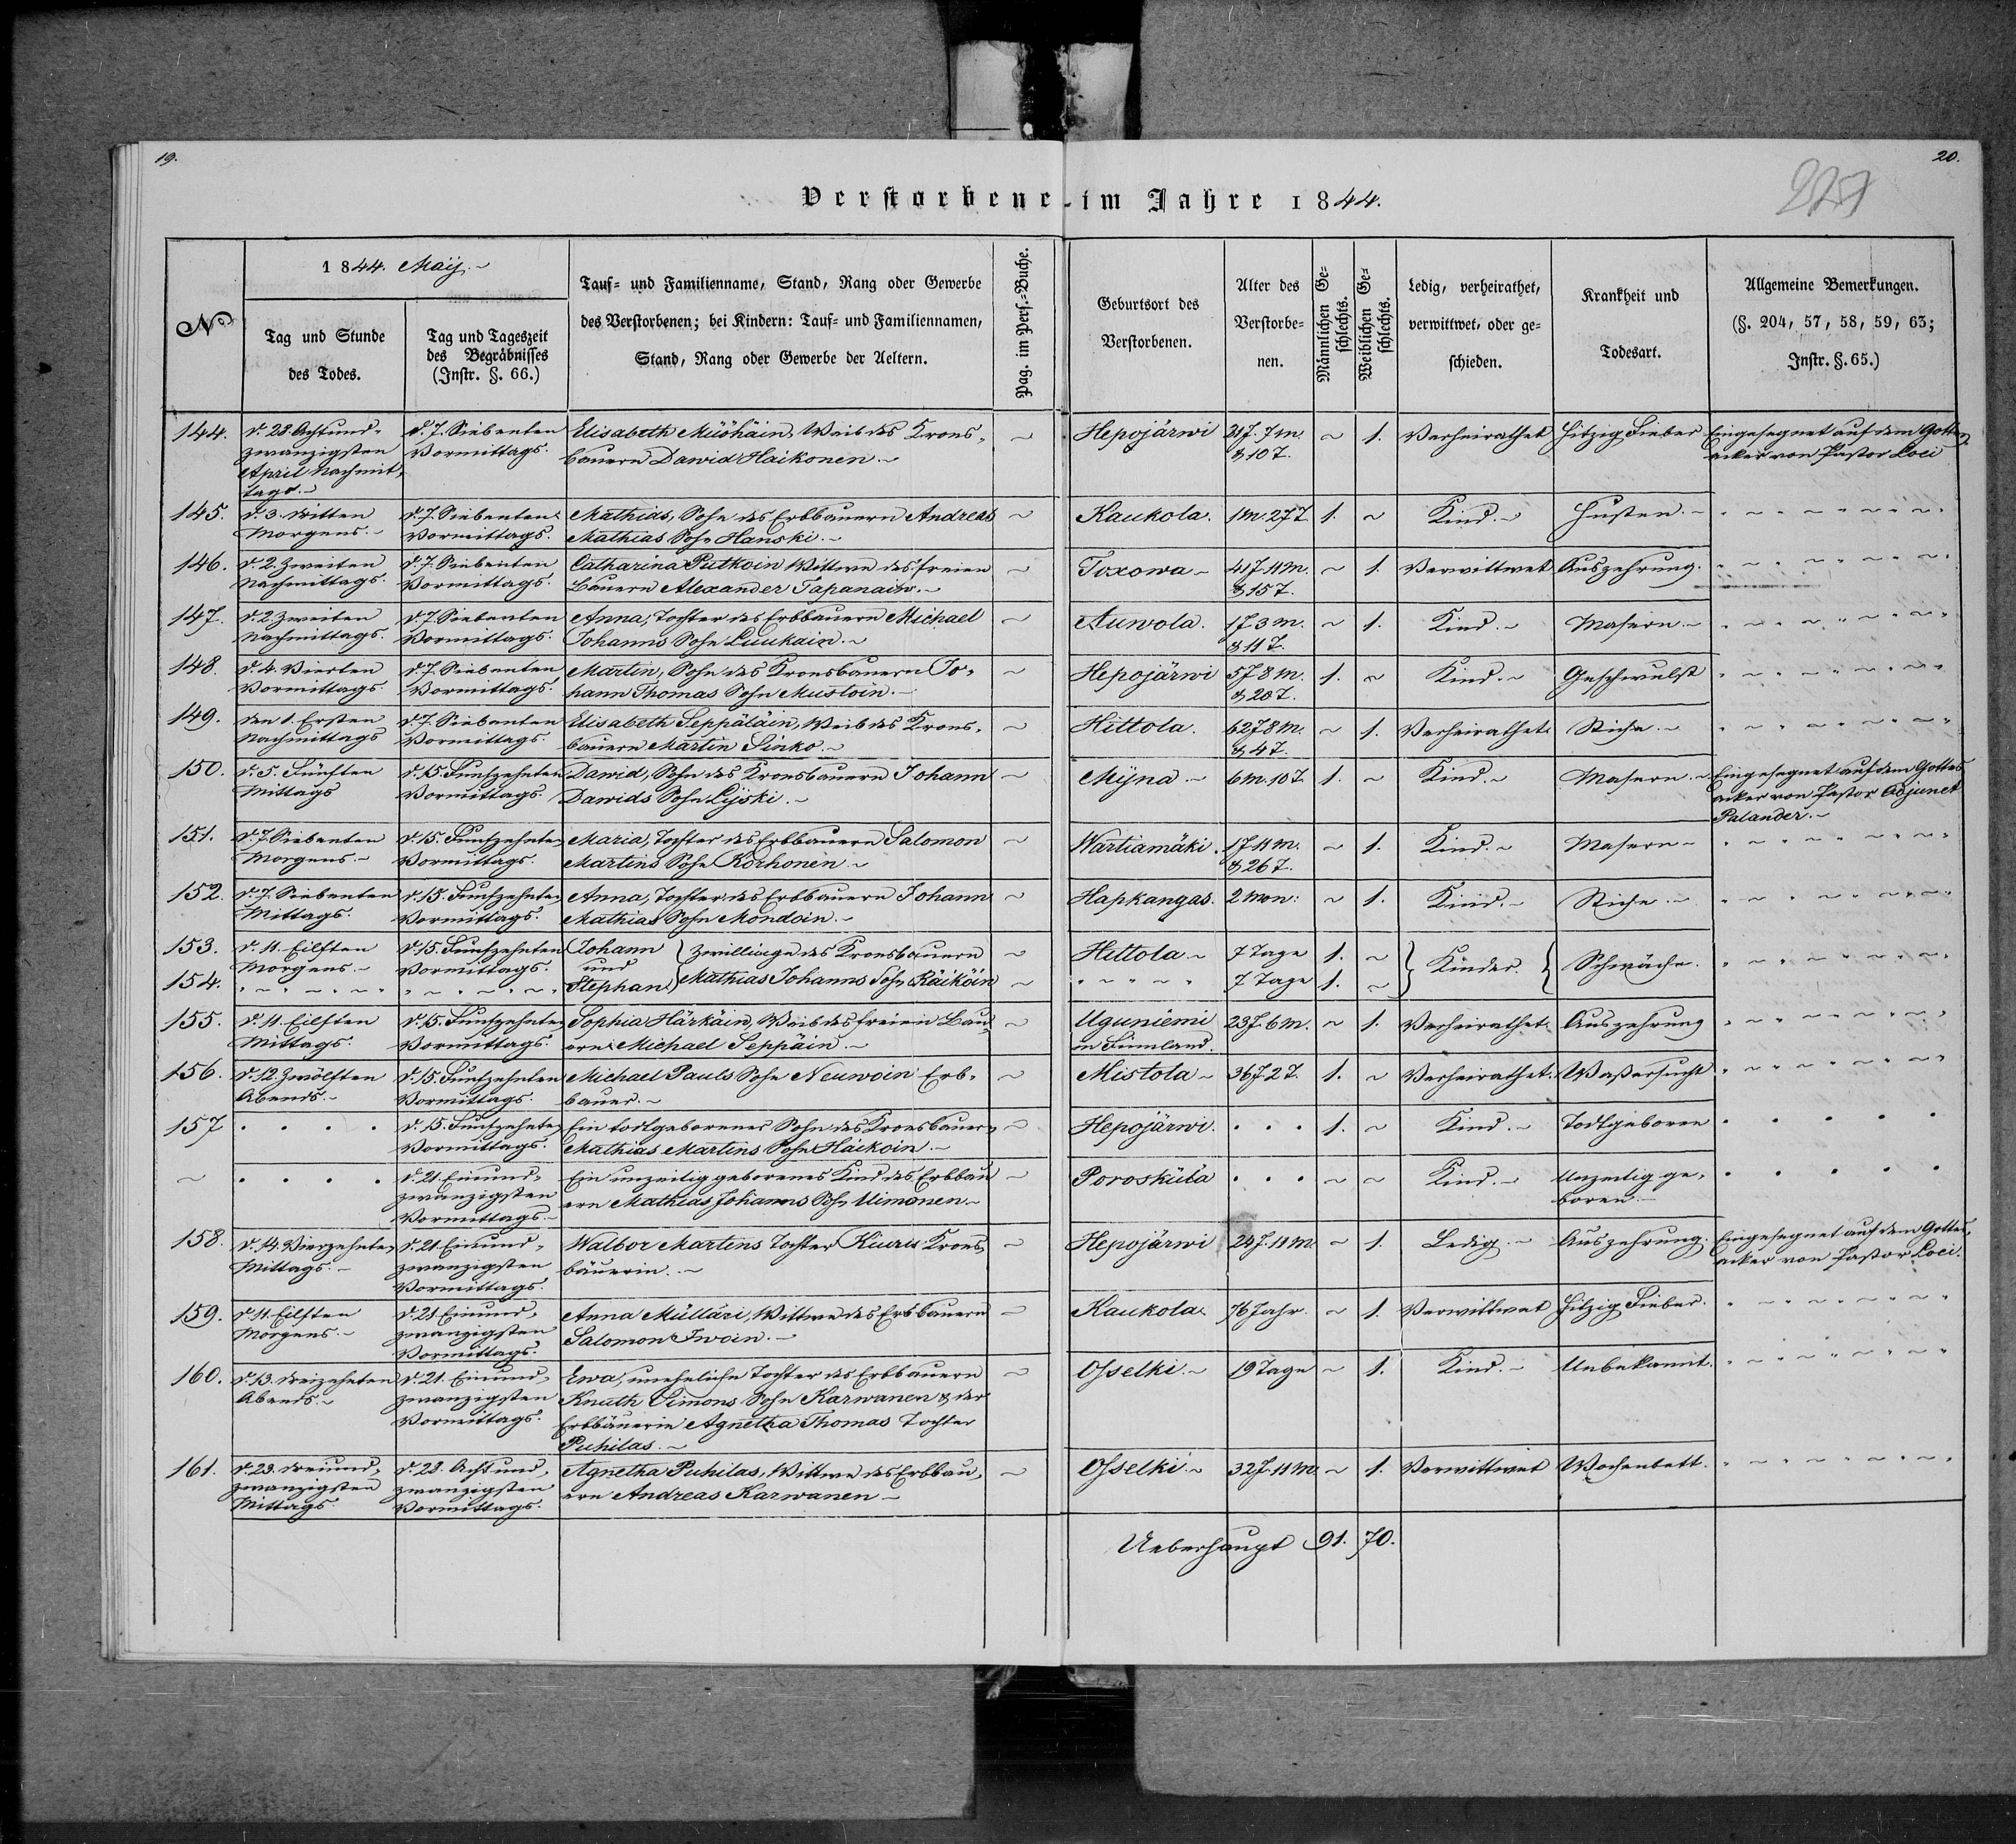 19.
20.
Verstorbene im Jahre 1844.
No
1844. Maÿ.
Tag und Stunde
des Todes.
Tag und Tageszeit
des Begräbnisses
(Instr. §. 66.)
Tauf- und Familienname, Stand, Rang oder Gewerbe
des Verstorbenen; bei Kindern: Tauf- und Familiennamen,
Stand, Rang oder Gewerbe der Aeltern.
Pag. im Pers.-Buche.
Geburtsort des
Verstorbenen.
Alter des
Verstorbe-
nen.
Männlichen Ge-
schlechts.
Weiblichen Ge-
schlechts.
Ledig, verheirathet,
verwittwet, oder ge-
schieden.
Krankheit und
Todesart.
Allgemeine Bemerkungen.
(§. 204, 57, 58, 59, 63;
Instr. §. 65.)
144. d. 28. Achtund-
zwanzigsten
April Nachmit-
tags.
d. 7. Siebenten
Vormittags.
Elisabeth Müöhäin, Weib des Krons-
bauern Dawid Haikonen.
Hepojärwi 21 J. 7 M. ~ 1. Verheirathet Hitzig Fieber Eingesegnet auf dem Gottes-
& 10 T. acker von Pastor Loci
145. d. 3. Dritten
Morgens.
d. 7. Siebenten
Vormittags.
Mathias, Sohn des Erbbauern Andreas
Mathias Sohn Hanski.
Kaukola. 1 M. 27 T. 1. ~ Kind. Husten.
146. d. 2. Zweiten
Nachmittags.
d. 7. Siebenten
Vormittags.
Catharina Putkoin Wittwe des freien
Bauern Alexander Tapanain.
Toxowa 41 J. 11 M. ~ 1. Verwittwet Auszehrung.
& 15 T.
147. d. 2. Zweiten
Nachmittags.
d. 7. Siebenten
Vormittags.
Anna, Tochter des Erbbauern Michael
Johanns Sohn Luukain.
Auwola. 1 J. 3 M. ~ 1. Kind. Masern.
& 11 T.
148. d. 4. Vierten
Vormittags.
d. 7. Siebenten
Vormittags.
Martin, Sohn des Kronsbauern Jo-
hann Thomas Sohn Mustoin.
Hepojärwi 5 J. 8 M. 1. ~ Kind. Geschwulst
& 20 T.
149. den 1. Ersten
Nachmittags
d. 7. Siebenten
Vormittags.
Elisabeth Seppäläin, Weib des Krons-
bauern Martin Sinko.
Hittola. 62 J. 8 M. ~ 1. Verheirathet. Stiche.
& 4 T.
150. d. 5. Fünften
Mittags
d. 15. Funfzehnten
Vormittags.
Dawid, Sohn des Kronsbauern Johann
Dawids Sohn Lÿski.
Mÿna 6 M. 10 T. 1. ~ Kind. Masern. Eingesegnet auf dem Gottes
acker von Pastor Adjunct
Palander.
151. d. 7. Siebenten
Morgens.
d. 15. Funfzehnten
Vormittags.
Maria, Tochter des Erbbauern Salomon
Martins Sohn Korhonen
Wartiamäki. 1 J. 11 M. ~ 1. Kind. Masern
& 26 T.
152. d. 7. Siebenten
Mittags.
d. 15. Funfzehnten
Vormittags.
Anna, Tochter des Erbbauern Johann
Mathias Sohn Mondoin.
Hapkangas. 2 Mon: ~ 1. Kind. Stiche.
153. d. 11. Eilften
Morgens.
d. 15. Funfzehnten
Vormittags.
Johann Zwillinge des Kronsbauern
und
154. Stephan Mathias Johanns Sohn Räiköin
Hittola 7 Tage 1. ~ Kinder. Schwäche.
7 Tage 1. ~
155. d. 11. Eilften
Mittags.
d. 15. Funfzehnten
Vormittags.
Sophia Härkäin, Weib des freien Bau-
ern Michael Seppäin.
Uguniemi 23 J. 6 M. ~ 1. Verheirathet. Auszehrung
in Finnland.
156. d. 12. Zwölften
Abends.
d. 15. Funfzehnten
Vormittags.
Michael Pauls Sohn Neuwoin Erb-
bauer.
Mistola 36 J. 2 T. 1. ~ Verheirathet. Waßersucht
157 d. 15. Funfzehnten
Vormittags.
Ein todtgeborener Sohn des Kronsbauern
Mathias Martins Sohn Häikoin.
Hepojärwi. 1. ~ Kind. Todtgeboren
~ d. 21. Einund-
zwanzigsten
Vormittags.
Ein unzeitig geborenes Kind des Erbbau
ern Mathias Johanns Sohn Uimonen.
Poroskülä ~ ~ Kind. Unzeitig ge-
boren.
158. d. 14. Vierzehnten
Mittags.
d. 21. Einund-
zwanzigsten
Vormittags.
Walbor Martins Tochter Kiuru Krons
bäuerin.
Hepojärwi 24 J. 11 M. ~ 1. Ledig. Auszehrung. Eingesegnet auf dem Gottes-
acker von Pastor Loci.
159. d. 11. Eilften
Morgens.
d. 21. Einund-
zwanzigsten
Vormittags.
Anna Mülläri, Wittwe des Erbbauern
Salomon Iwoin.
Kaukola 76 Jahr. ~ 1. Verwittwet Hitzig Fieber.
160. d. 13. Dreizehnten
Abends.
d. 21. Einund-
zwanzigsten
Vormittags.
Ewa, uneheliche Tochter des Erbbauern
Knuth Simons Sohn Karwanen & der
Erbbäuerin Agnetha Thomas Tochter
Puhilas.
Osselki. 19 Tage ~ 1. Kind. Unbekannt.
161. d. 23. Dreiund-
zwanzigsten
Mittags.
d. 28. Achtund-
zwanzigsten
Vormittags.
Agnetha Puhilas, Wittwe des Erbbau-
ern Andreas Karwanen
Osselki. 32 J. 11 M. ~ 1. Verwittwet Wochenbett.
Ueberhaupt 91. 70.